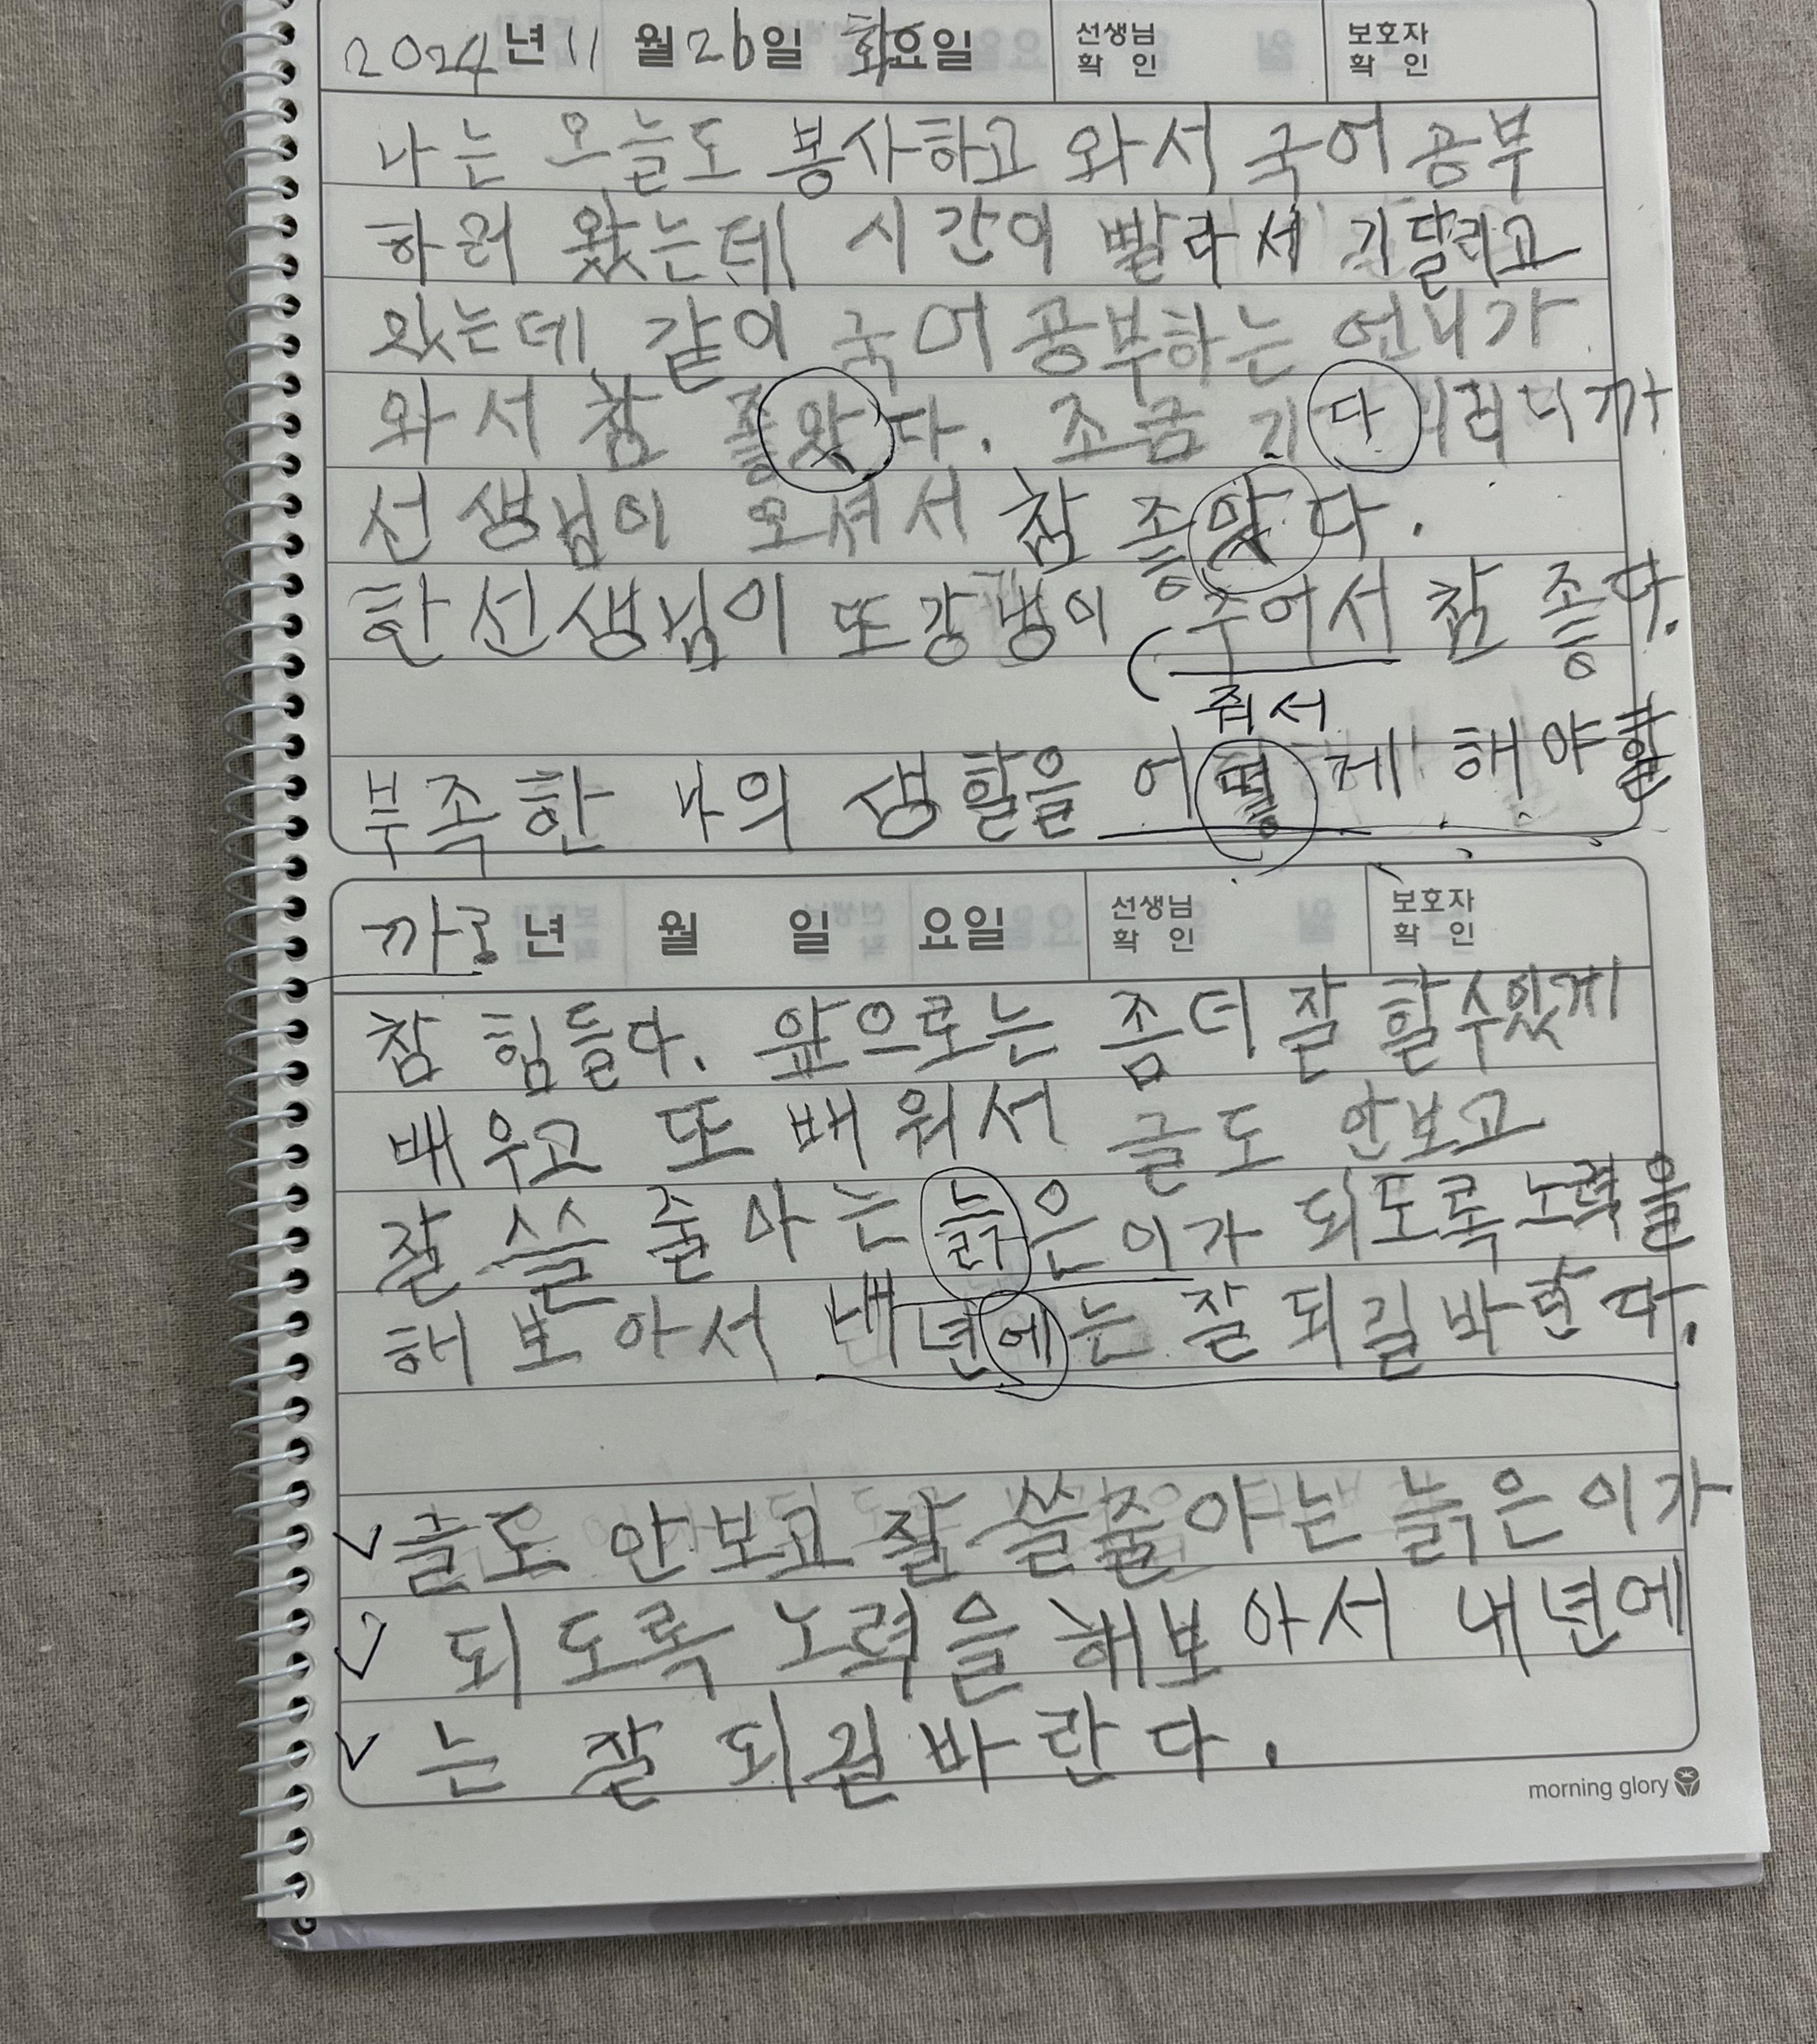 2024년 11월 26일 화요일 선생님 확인 보호자 확인
나는 오늘도 봉사하고 와서 국어 공부
하러 왔는데 시간이 빨라서 기달리고
있는데 같이 국어 공부하는 언니가
와서 참 좋았다. 조금 기다리니까
선생님이 오셔서 참 좋았다.
한선생님이 또 강냉이 주어서 참 좋다.
줘서
부족한 나의 생활을 어떻게 해야할
까? 년 월 일 요일 선생님 확인 보호자 확인
참 힘들다. 앞으로는 좀더 잘 할수있게
배우고 또 배워서 글도 안보고
잘 쓸 줄 아는 늙은이가 되도록 노력을
해 보아서 내년에는 잘 되길 바란다.
✓ 글도 안보고 잘 쓸줄 아는 늙은이가
✓ 되도록 노력을 해보아서 내년에
✓ 는 잘 되길 바란다.
morning glory